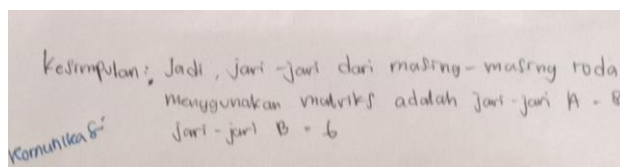 Kesimpulan: Jadi, jari-jari dari masing-masing roda
menggunakan matriks adalah jari-jari A = 8
jari-jari B = 6
Komunikasi